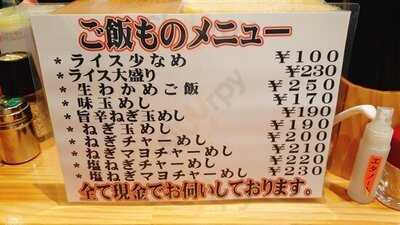 ご飯ものメニュー
* ライス少なめ ¥100
* ライス大盛り ¥230
* 生わかめご飯 ¥250
* 味玉めし ¥170
* 旨辛ねぎ玉めし ¥190
* ねぎ玉めし ¥190
* ねぎチャーめし ¥200
* ねぎマヨチャーめし ¥210
* 塩ねぎチャーめし ¥220
* 塩ねぎマヨチャーめし ¥230
全て現金でお伺いしております。
エタノール